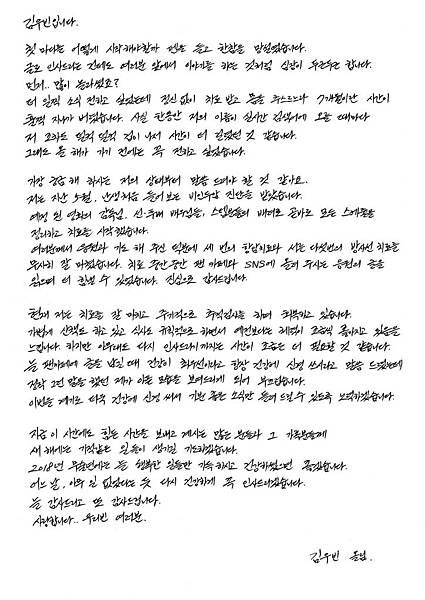 김우빈입니다.
첫 마디를 어떻게 시작해야할까 펜을 들고 한참을 망설였습니다.
글로 인사드리는 건데도 여러분 앞에서 이야기를 하는 것처럼 심장이 두근두근 합니다.
먼저.. 많이 놀라셨죠?
더 일찍 소식 전하고 싶었는데 정신없이 치료 받고 몸을 추스르느라 7개월이란 시간이
훌쩍 지나가 버렸습니다. 사실 한동안 저의 이름이 실시간 검색어에 오를 때마다
저 조차도 덜컥 덜컥 겁이 나서 시간이 더 길었던 것 같습니다.
그래도 올 해가 가기 전에는 꼭 전하고 싶었습니다.
가장 궁금해 하시는 저의 상태부터 말씀 드려야 할 것 같아요..
저는 지난 5월, 난생처음 들어보는 비인두암 진단을 받았습니다.
예정 된 영화의 감독님, 선·후배 배우님들, 스텝분들의 배려로 곧바로 모든 스케줄을
정리하고 치료를 시작했습니다.
여러분께서 응원과 기도 해 주신 덕분에 세 번의 항암치료와 서른 다섯번의 방사선 치료를
무사히 잘 마쳤습니다. 치료 중간중간 팬카페와 SNS에 올려주시는 응원의 글을
읽으며 더 힘낼 수 있었습니다. 진심으로 감사드립니다.
현재 저는 치료를 잘 마치고 주기적으로 추적검사를 하며 회복하고 있습니다.
가볍게 산책도 하고 있고 식사도 규칙적으로 하면서 예전보다는 체력이 조금씩 좋아지고 있음을
느낍니다. 하지만 아무래도 다시 인사드리기까지는 시간이 조금은 더 필요할 것 같습니다.
늘 팬카페에 글을 남길 때 건강이 최우선이라고 항상 건강에 신경 쓰시라고 말씀 드렸는데
정작 그런 말을 했던 제가 아픈 모습을 보여드리게 되어 부끄럽습니다.
이번을 계기로 더욱 건강에 신경 써서 기쁘고 좋은 소식만 들려드릴 수 있도록 노력하겠습니다.
지금 이 시간에도 힘든 시간을 보내고 계시는 많은 분들과 그 가족분들께
새 해에는 기적같은 일들이 생기길 기도하겠습니다.
2018년 무술년에는 늘 행복한 일들만 가득하시고 건강하셨으면 좋겠습니다.
어느 날, 아무 일 없었다는 듯 다시 건강하게 꼭 인사드리겠습니다.
늘 감사드리고 또 감사드립니다.
사랑합니다.. 우리빈 여러분.
김우빈 올림.